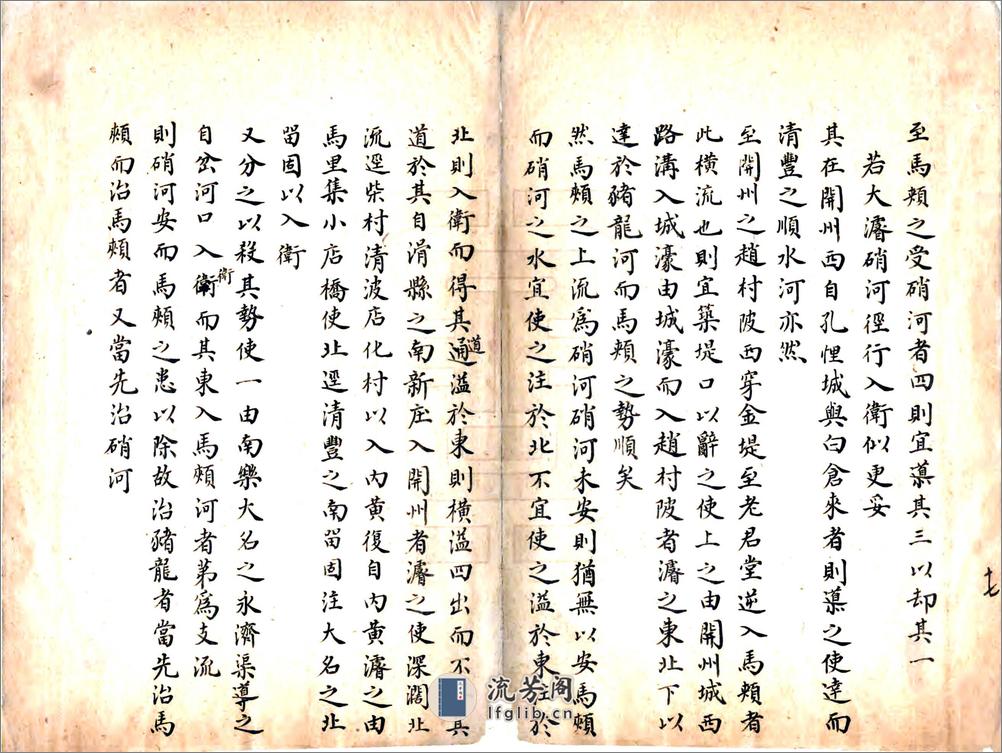 至馬頰之受硝河者四則宜導其三以却其一
若大濬硝河徑行入衛似更妥
其在開州西自孔悝城與白倉來者則導之使達而
清豐之順水河亦然
至開州之趙村陂西穿金堤至老君堂逆入馬頰者
此橫流也則宜築堤口以辭之使上之由開州城西
路溝入城濠由城濠而入趙村陂者濬之東北下以
達於豬龍河而馬頰之勢順矣
然馬頰之上流爲硝河硝河未安則猶無以安馬頰
而硝河之水宜使之注於北不宜使之溢於東注於
北則入衛而得其通道溢於東則橫溢四出而不其
道於其自滑縣之南新庄入開州者濬之使深濶北
流逕柴村清波店化村以入內黃復自內黃濬之由
馬里集小店橋使北逕清豐之南畱固注大名之北
畱固以入衛
又分之以殺其勢使一由南樂大名之永濟渠導之
自岔河口入衛而其東入馬頰河者第爲支流
則硝河安而馬頰之患以除故治豬龍者當先治馬
頰而治馬頰者又當先治硝河
十七
流芳阁
lfglib.cn